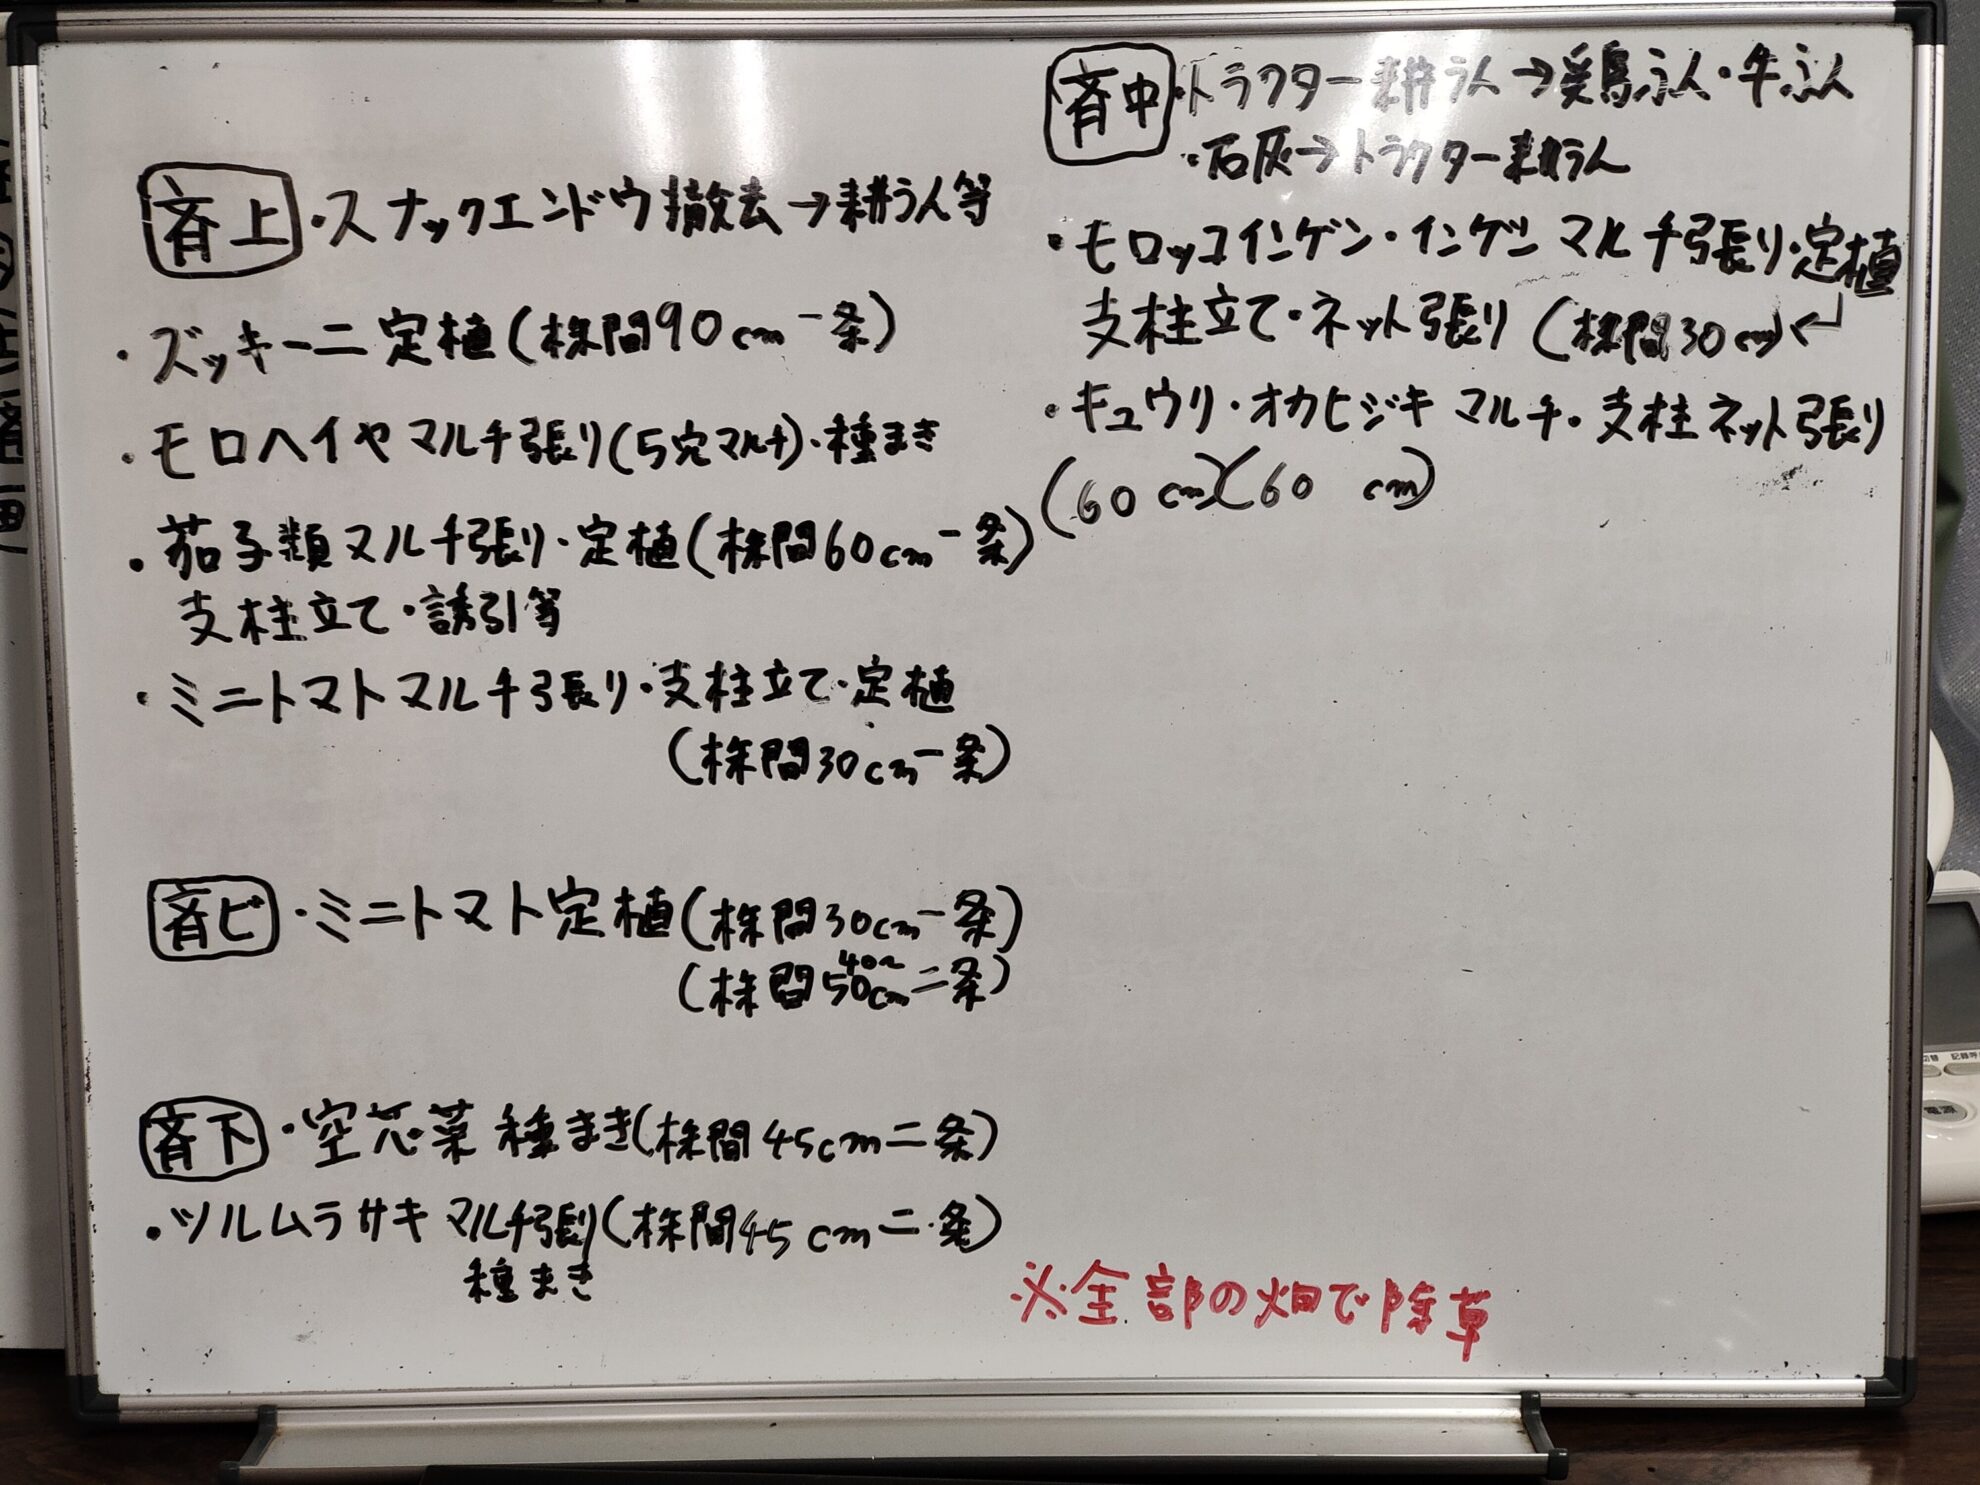 斉上・スナックエンドウ撤去→耕うん等
・ズッキーニ定植(株間90cm一条)
・モロヘイヤマルチ張り(5穴マルチ)・種まき
・茄子類マルチ張り・定植(株間60cm一条)
支柱立て・誘引等
・ミニトマトマルチ張り・支柱立て・定植
(株間30cm一条)
斉ビ・ミニトマト定植(株間30cm一条)
(株間40~50cm二条)
斉下・空芯菜 種まき(株間45cm二条)
・ツルムラサキ マルチ張り(株間45cm二条)
種まき
斉中・トラクター耕うん→鶏ふん・牛ふん
・石灰→トラクター耕うん
・モロッコインゲン・インゲン マルチ張り・定植
支柱立て・ネット張り(株間30cm)↵
・キュウリ・オカヒジキ マルチ・支柱ネット張り
(60cm)(60 cm)
※全部の畑で除草